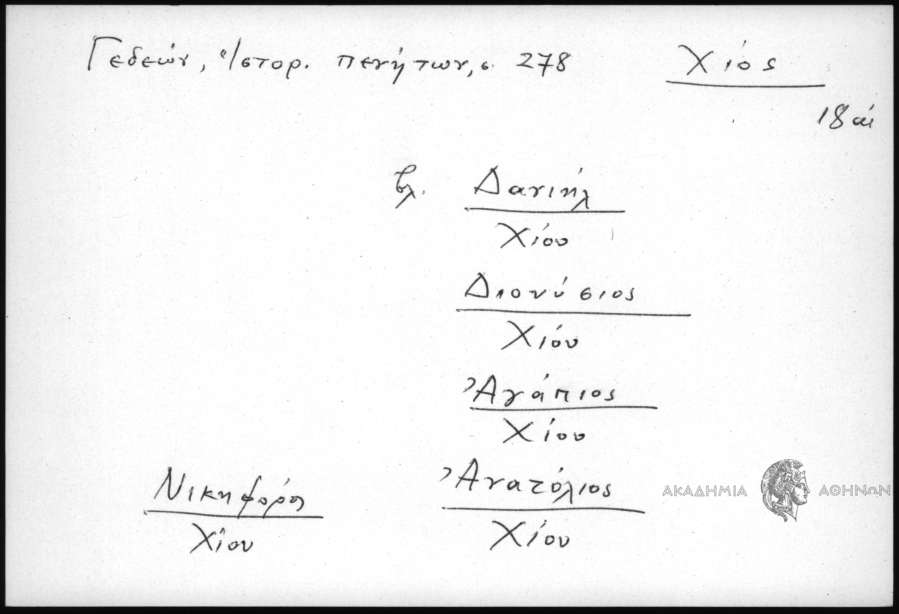 Γεδεών, Ἱστορ. πενήτων, σ. 278
Χίος
18 αἰ
βλ. Δανιήλ
Χίου
Διονύσιος
Χίου
Ἀγάπιος
Χίου
Νικηφόρος
Χίου
Ἀνατόλιος
Χίου
ΑΚΑΔΗΜΙΑ ΑΘΗΝΩΝ